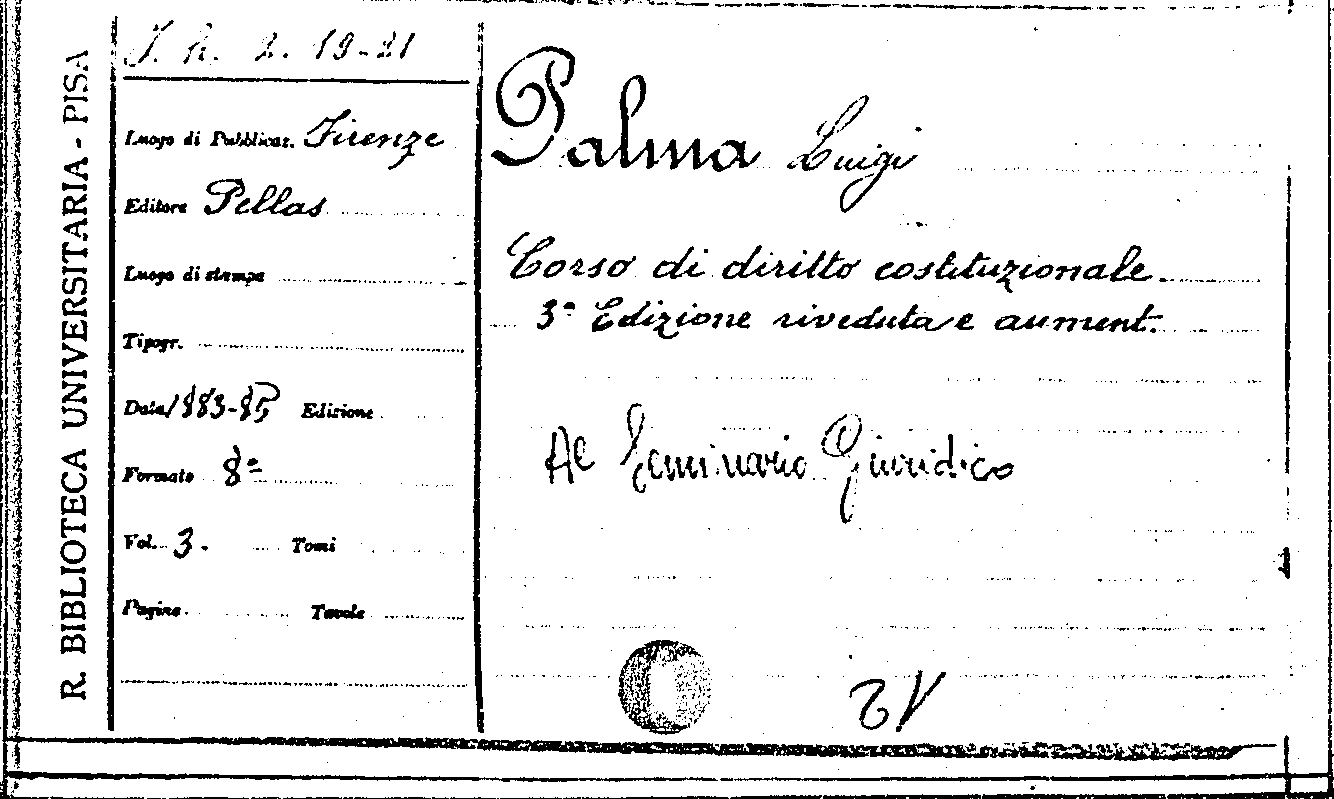 R. BIBLIOTECA UNIVERSITARIA - PISA
J. h. 2. 19-21
Luogo di Pubblicaz. Firenze
Editore Pellas
Luogo di stampa
Tipogr.
Data 1883-85 Edizione
Formato 8º
Vol. 3. Tomi
Pagine Tavole
Palma Luigi
Corso di diritto costituzionale.
3ª Edizione riveduta e aument.
Al Seminario Giuridico